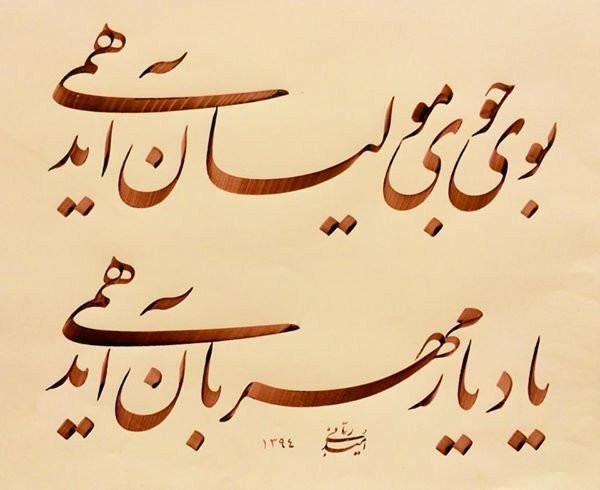 بوی جوی مولیان آید همی
یاد یار مهربان آید همی
امید ربانی ۱۳۹۴